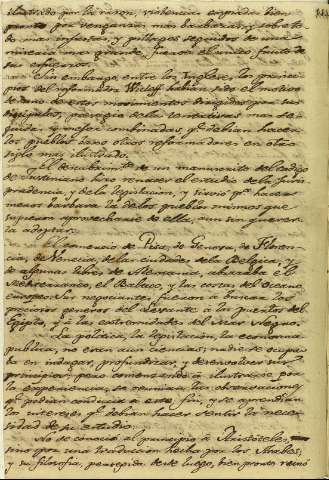 ilustrado por la razon, violencias
por venganzas mas barbaras, y sobre todo
de una infeccion, y pillages seguidos de una
miseria mas grande, fueron el unico fruto de
sus esfuerzos.
Sin embargo, entre los Ingleses, los princi-
pios del reformador Wiclef habian sido el motivo
de uno de estos movimientos dirigidos por sus
discipulos, presagio de las tentativas mas se-
guidas, y mejor combinadas, qe debian hacer
los pueblos baxo otros reformadores en otro
siglo mas ilustrado.
El descubrimto de un manuscrito del codigo
de Justiniano hizo renacer el estudio de la Juris
prudencia, y de la legislacion, y sirvió pa hacer
menos barbara la de los pueblos mismos que
supieron aprovecharse de ella, aun sin querer
la adoptar.
El comercio de Pisa, de Genova, de Floren-
cia, de Venecia, de las ciudades de la Belgica, y
de algunas libres de Alemania, abrazaba el
Mediterraneo, el Baltico, y las costas del Oceano
europeo. Sus negociantes fueron a buscar los
preciosos generos del Levante a los puertos del
Egipto, y a las extremidades del Mar Negro.
La politica, la legislacion, la economia
publica, no eran aun ciencias; nadie se ocupa
ba en indagar, profundizar, y desenvolver sus
principios; pero comenzando a ilustrarse por
la experiencia, se reunian las observaciones
qe podian conducir a este fin, y se aprendian
los intereses qe debian hacer sentir la nece-
sidad de su estudio.
No se conoció al principio a Aristóteles,
sino por una traduccion hecha por los Arabes;
y su filosofia, perseguida desde luego, bien pronto reinó